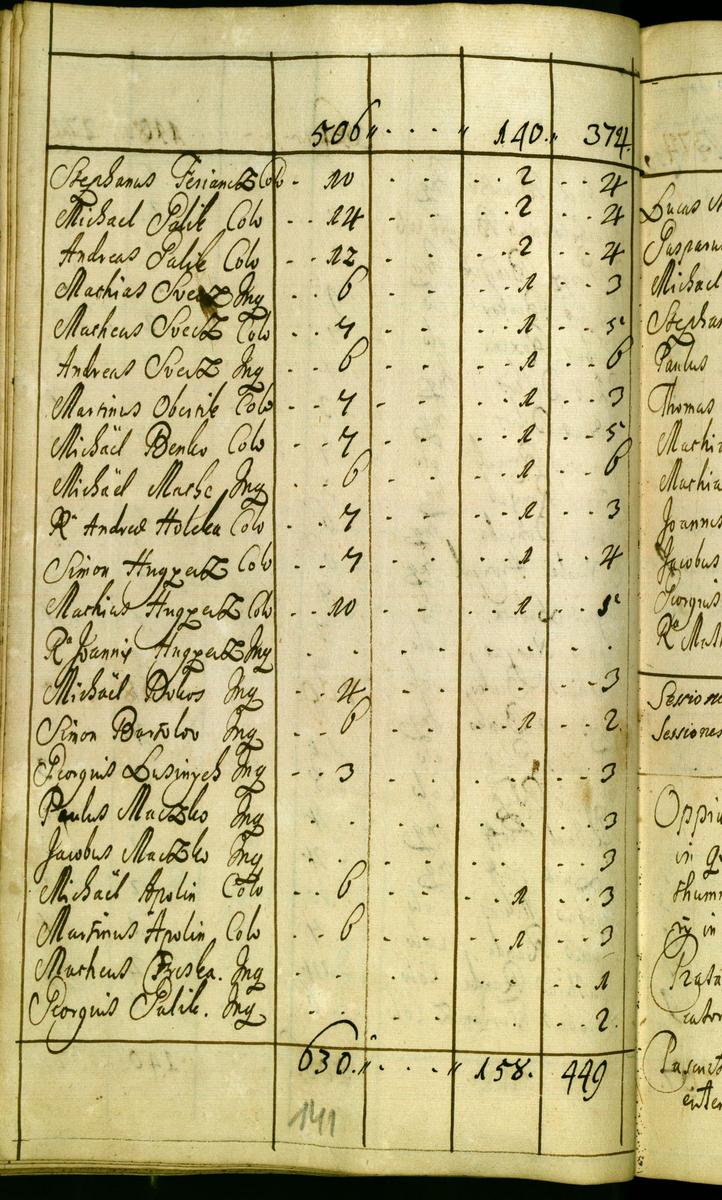 506 140. 374.
Stephanus Ferancz Colo 10 2 4
Michael Palik Colo 14 2 4
Andreas Palik Colo 12 2 4
Mathias Svecz Inq 6 1 3
Matheus Svecz Colo 7 1 5
Andreas Svecz Inq 6 1 6
Martinus Obertik Colo 7 1 3
Michaël Benko Colo 7 1 5
Michaël Mache Inq 6 1 6
Andreæ Holeka Colo 7 1 3
Simon Hugyecz Colo 7 1 4
Mathias Hugyecz Colo 10 1 5
Rª Joannis Hugyecz Inq
Michaël Bokos Inq 4 3
Simon Bartolov Inq 6 1 2
Georgius Lusinych Inq 3 3
Paulus Maczko Inq 3
Jacobus Maczko Inq 3
Michaël Apolin Colo 6 1 3
Martinus Apolin Colo 6 1 3
Matheus Inq 1
Georgius Palik. Inq 2
630. 158. 449
141
Lucas
Gasparus
Michael
Stephan
Paulus
Thomas
Mathia
Mathia
Joannes
Jacobus
Georgius
Rª Math
Sessiones
Sessiones
Oppid
in
in
Prata